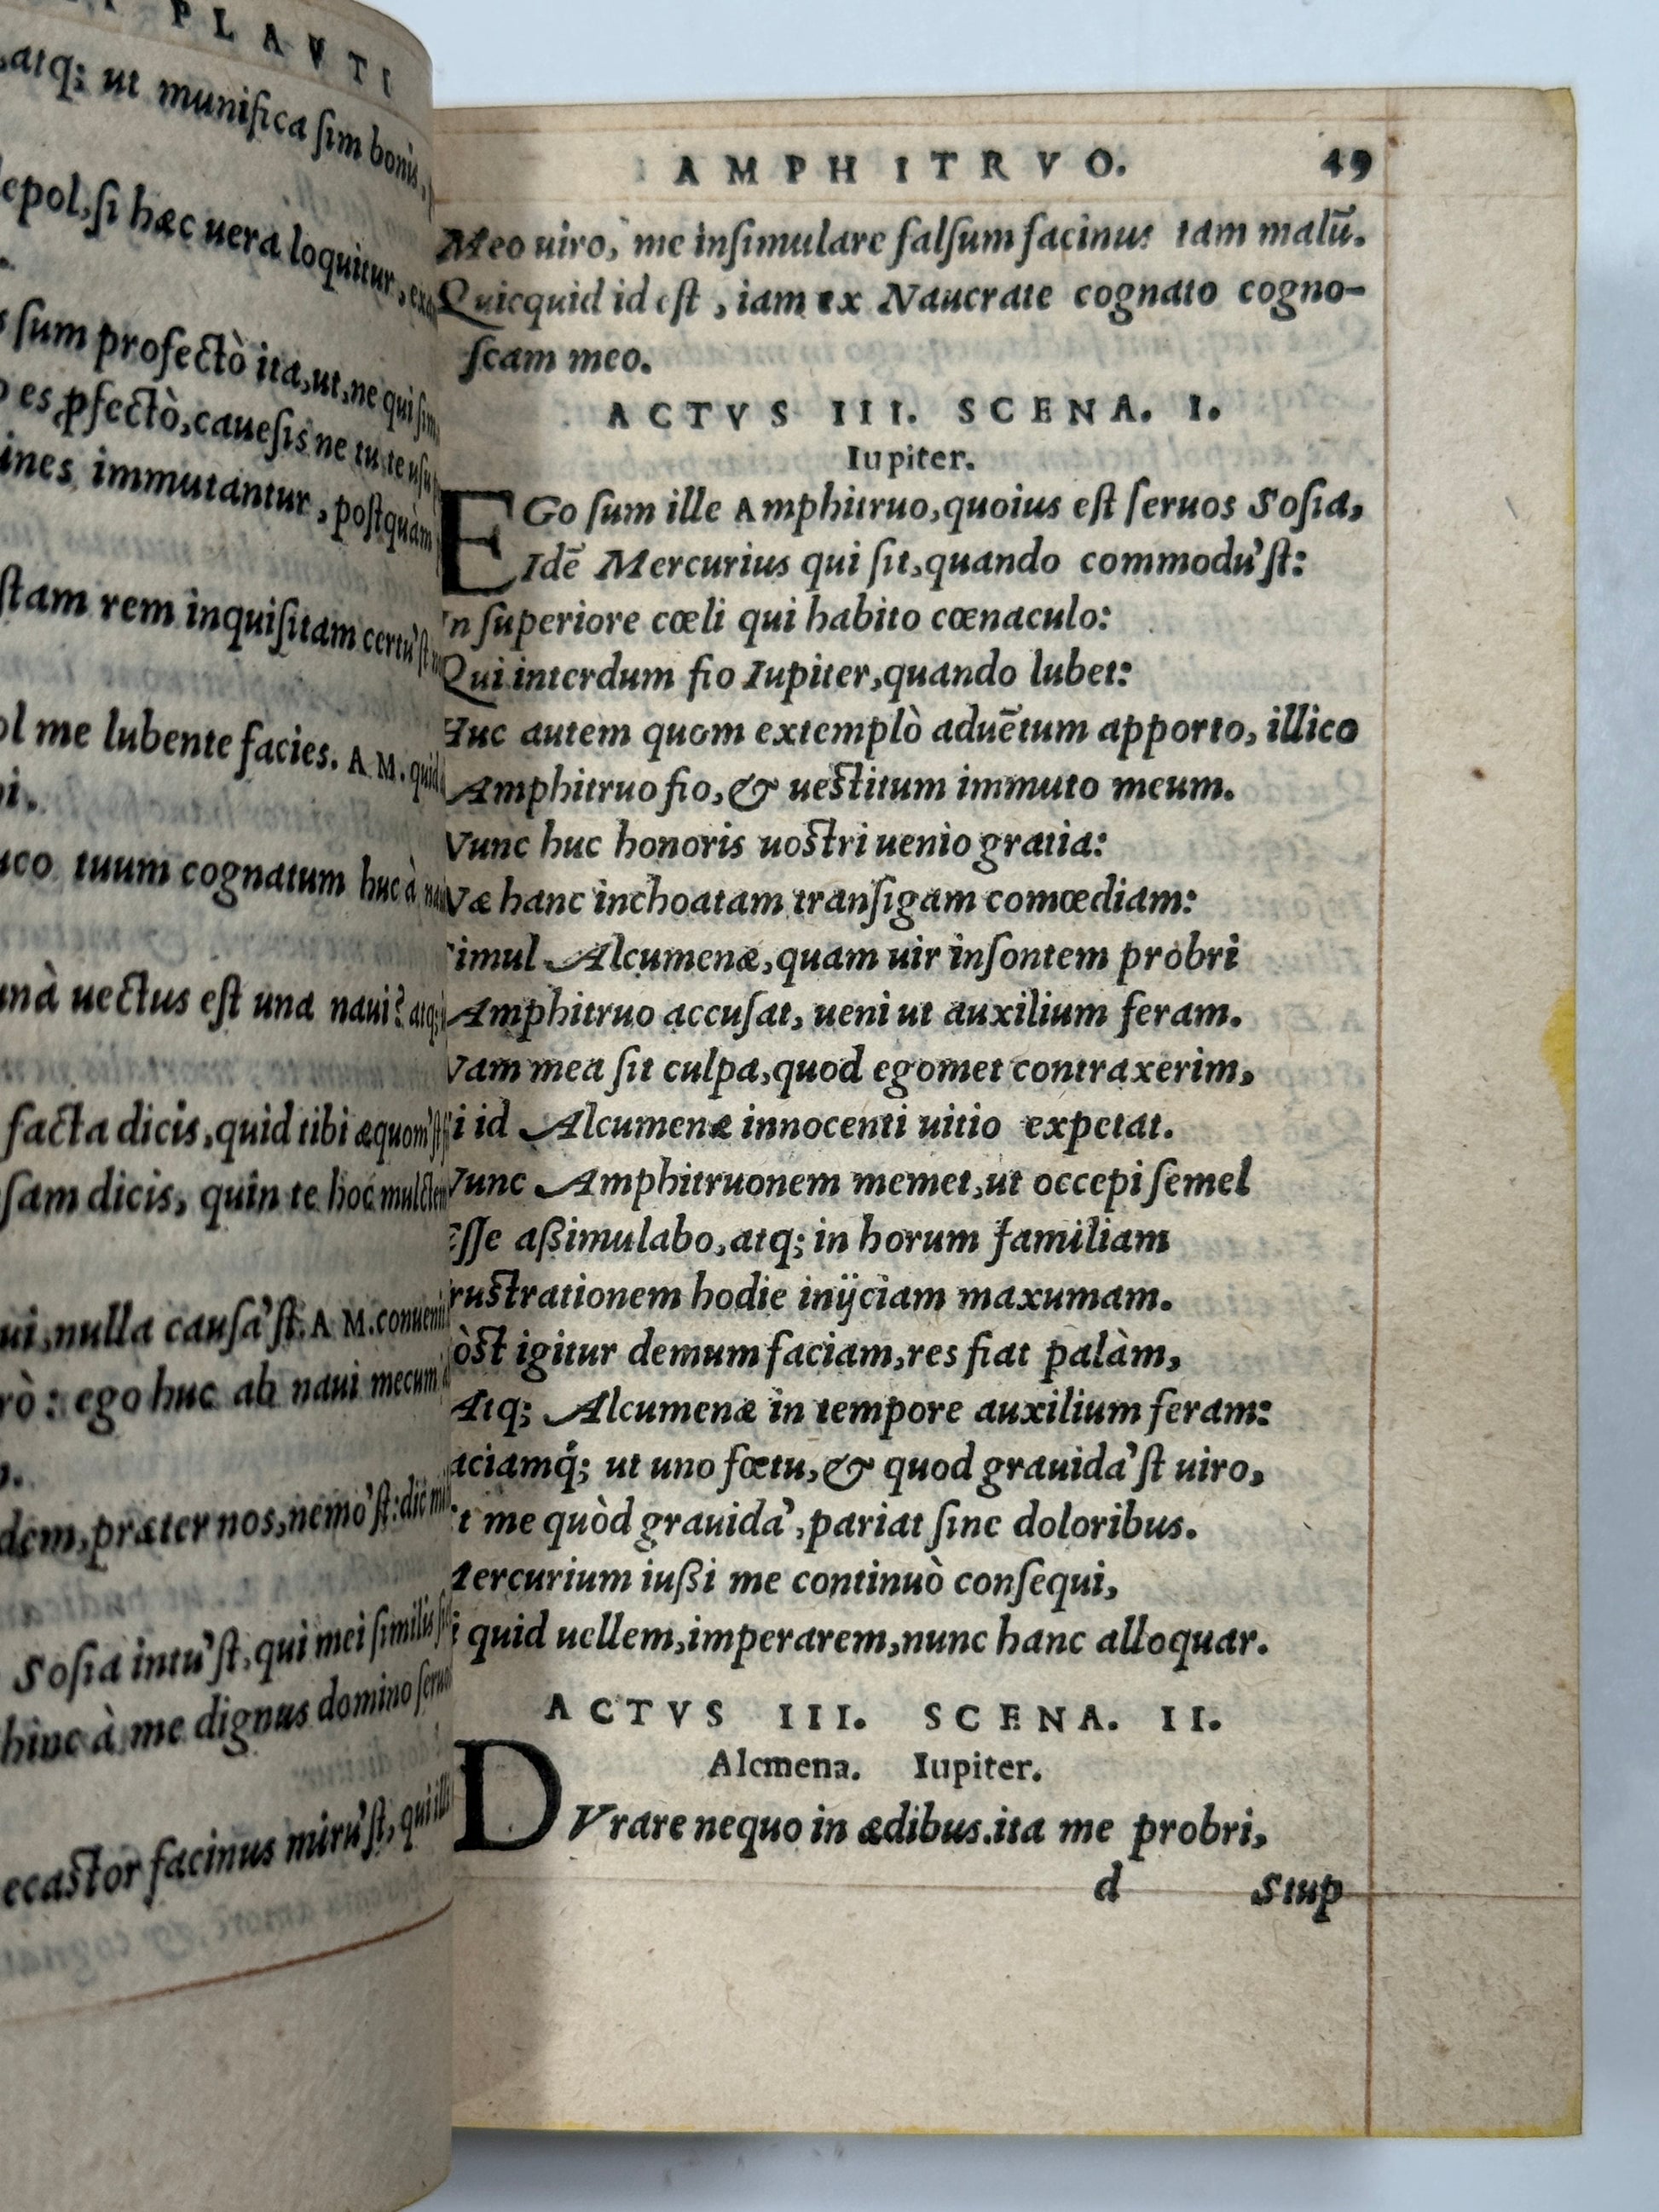 PLAVTI
atq; ut munifica ſim bonis,
ſi hæc uera loquitur,
ſum profectò ita, ut, ne qui
es ꝓfectò, caueſis ne tu te
immutantur, poſtquàm
rem inquiſitam certu'ſt
me lubente facies. AM.
tuum cognatum huc à
uectus eſt una naui? atq;
facta dicis, quid tibi æquom'ſt
dicis, quin te hoc
nulla cauſa'ſt. AM.
ego huc ab naui mecum
præter nos, nemo'ſt: dic
Soſia intu'ſt, qui mei ſimilis
hinc à me dignus domino
ecaſtor facinus miru'ſt, qui
AMPHITRVO. 49
Meo uiro, me inſimulare falſum facinus tam malū.
Quicquid id eſt, iam ex Naucrate cognato cogno-
ſcam meo.
ACTVS III. SCENA. I.
Iupiter.
EGo ſum ille Amphitruo, quoius eſt ſeruos Soſia,
Idē Mercurius qui ſit, quando commodu'ſt:
In ſuperiore cœli qui habito cœnaculo:
Qui interdum fio Iupiter, quando lubet:
Huc autem quom extemplò aduētum apporto, illico
Amphitruo fio, & ueſtitum immuto meum.
Nunc huc honoris uoſtri uenio gratia:
Næ hanc inchoatam tranſigam comœdiam:
Simul Alcumenæ, quam uir inſontem probri
Amphitruo accuſat, ueni ut auxilium feram.
Nam mea ſit culpa, quod egomet contraxerim,
Si id Alcumenæ innocenti uitio expetat.
Nunc Amphitruonem memet, ut occepi ſemel
Eſſe aßimulabo, atq; in horum familiam
fruſtrationem hodie inijciam maxumam.
Pòſt igitur demum faciam, res fiat palàm,
Atq; Alcumenæ in tempore auxilium feram:
faciamq́; ut uno fœtu, & quod grauida'ſt uiro,
Et me quòd grauida', pariat ſine doloribus.
Mercurium iußi me continuò conſequi,
Si quid uellem, imperarem, nunc hanc alloquar.
ACTVS III. SCENA. II.
Alcmena. Iupiter.
DVrare nequo in ædibus. ita me probri,
d Stup